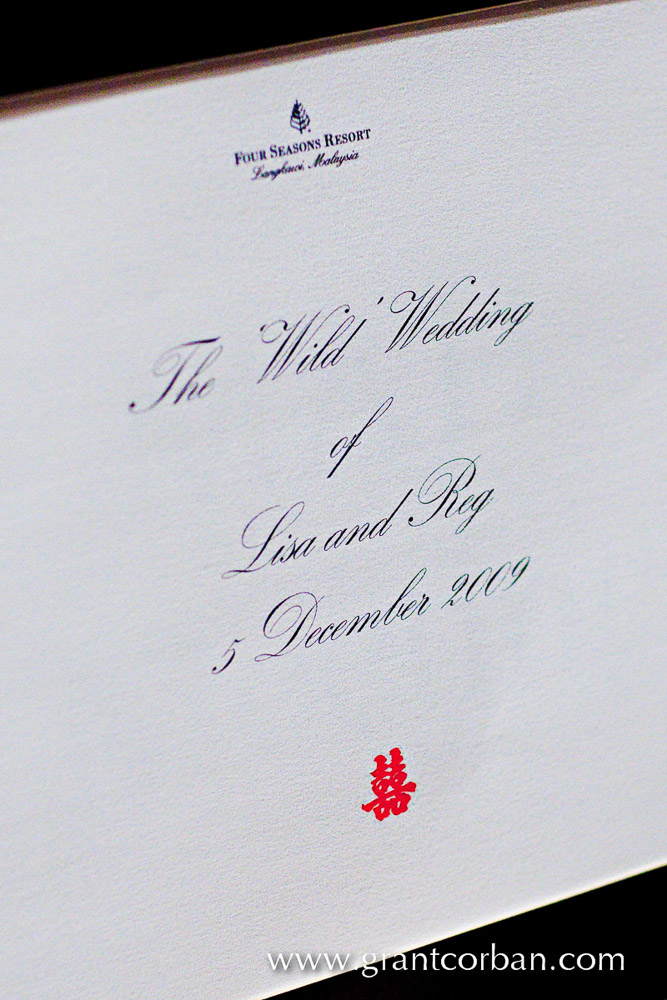 FOUR SEASONS RESORT
Langkawi, Malaysia
The 'Wild' Wedding
of
Lisa and Reg
5 December 2009
囍
www.grantcorban.com